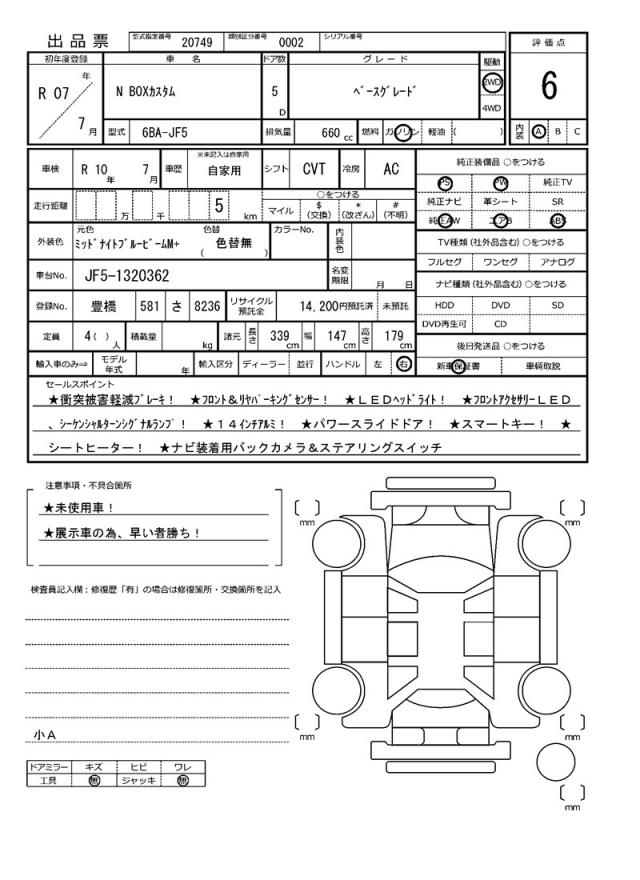 出品票 型式指定番号 20749 類別区分番号 0002 シリアル番号
評価点
初年度登録 車名 ドア数 グレード 駆動
R 07 年 7 月 N BOXカスタム 5 D ベースグレード 2WD 4WD
6
型式 6BA-JF5 排気量 660 cc 燃料 ガソリン 軽油 ( ) 内装 A B C
車検 R 10 年 7 月 車歴 ※未記入は自家用 自家用 シフト CVT 冷房 AC
純正装備品 ○をつける
PS PW 純正TV
純正ナビ 革シート SR
純正AW エアB ABS
走行距離 万 千 5 km
○をつける
マイル $ (交換) * (改ざん) # (不明)
外装色 元色 ミッドナイトブルービームM+ 色替 ( 色替無 ) カラーNo. 内装色
TV種類 (社外品含む) ○をつける
フルセグ ワンセグ アナログ
車台No. JF5-1320362 名変期限 月 日
ナビ種類 (社外品含む) ○をつける
HDD DVD SD
DVD再生可 CD
登録No. 豊橋 581 さ 8236 リサイクル預託金 14,200円預託済 未預託
定員 4( ) 人 積載量 kg 諸元 長さ 339 cm 幅 147 cm 高さ 179 cm
後日発送品 ○をつける
新車保証書 車輌取説
輸入車のみ⇒ モデル年式 年 輸入区分 ディーラー 並行 ハンドル 左 右
セールスポイント
★衝突被害軽減ブレーキ！ ★フロント&リヤパーキングセンサー！ ★ＬＥＤヘッドライト！ ★フロントアクセサリーＬＥＤ
、シーケンシャルターンシグナルランプ！ ★１４インチアルミ！ ★パワースライドドア！ ★スマートキー！ ★
シートヒーター！ ★ナビ装着用バックカメラ＆ステアリングスイッチ
注意事項・不具合箇所
★未使用車！
★展示車の為、早い者勝ち！
検査員記入欄：修復歴「有」の場合は修復箇所・交換箇所を記入
小Ａ
ドアミラー キズ ヒビ ワレ
工具 無 ジャッキ 無
[ ] mm
[ ] mm
[ ] mm
[ ] mm
[ ] mm